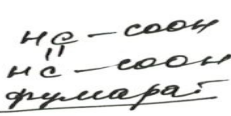 HC — COOH
||
HC — COOH
фумарат